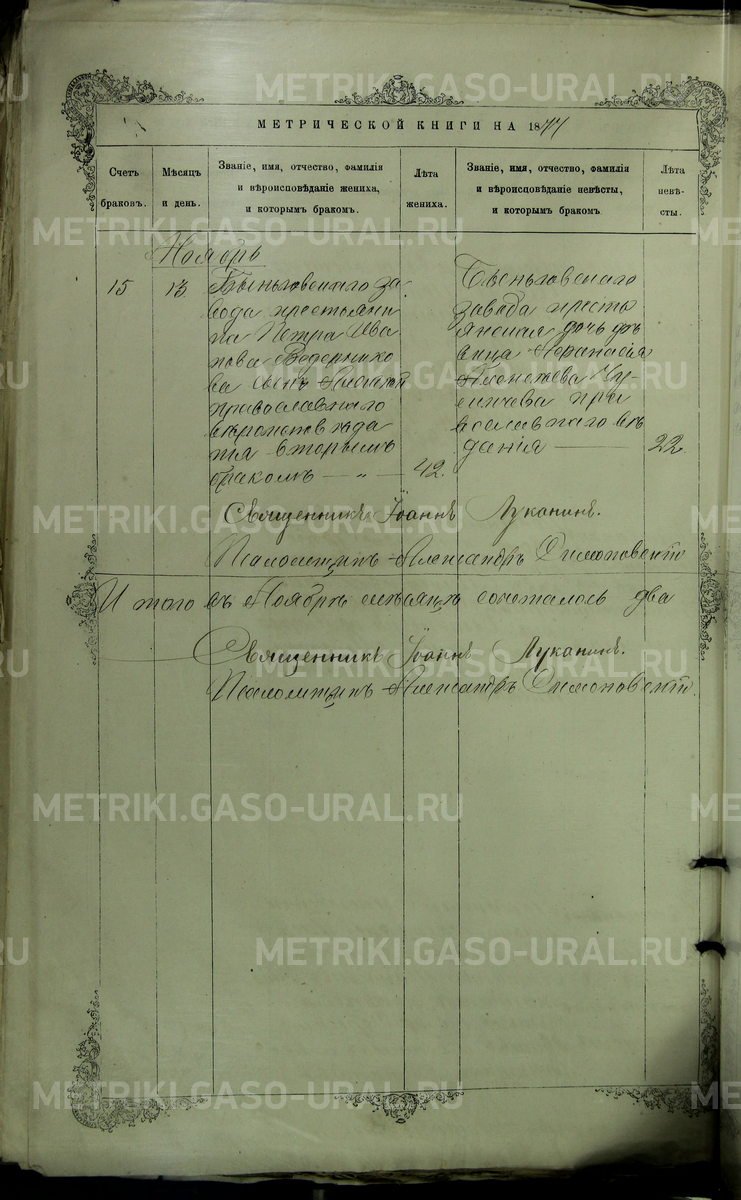 МЕТРИЧЕСКОЙ КНИГИ НА 1874
Счетъ браковъ.
Мѣсяцъ и день.
Званіе, имя, отчество, фамилія
и вѣроисповѣданіе жениха,
и которымъ бракомъ.
Лѣта жениха.
Званіе, имя, отчество, фамилія
и вѣроисповѣданіе невѣсты,
и которымъ бракомъ
Лѣта невѣ-сты.
Ноябрь
15
13
Быньговскаго за
вода крестьяни
на Петра Ива
нова Ведернико
ва сынъ
православнаго
вторымъ
бракомъ — „ —
42.
Быньговскаго
завода кресть
янская дочь
вица
православнаго вѣ
данія
22.
Священникъ Іоаннъ Луканинъ.
Псаломщикъ Александръ
Итого въ Ноябрѣ мѣсяцѣ сочеталось два
Священникъ Іоаннъ Луканинъ.
Псаломщикъ Александръ
METRIKI.GASO-URAL.RU